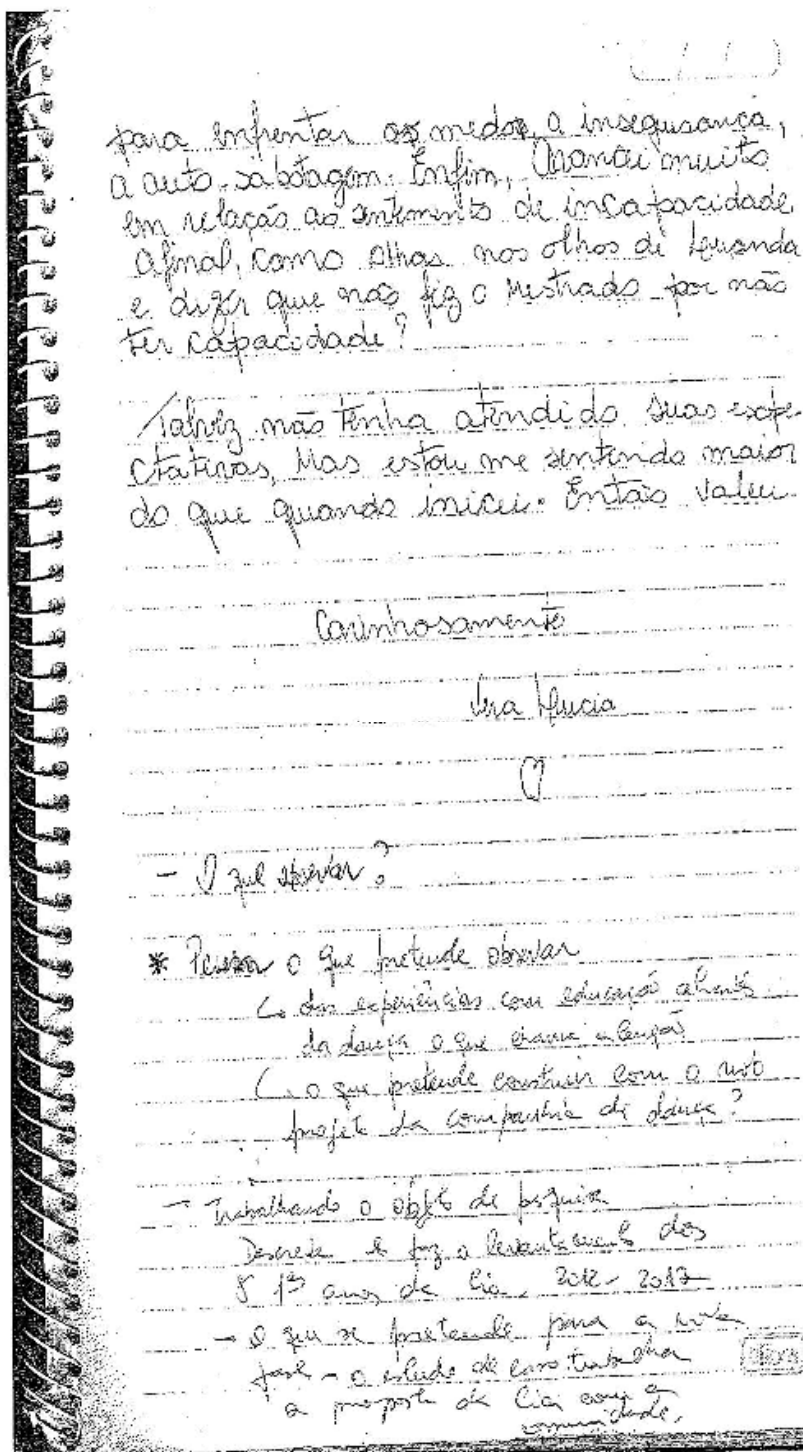 para enfrentar os medos, a insegurança,
a auto-sabotagem. Enfim, Avancei muito
em relação ao sentimento de incapacidade
Afinal, como olhar nos olhos de
e dizer que não fiz o Mestrado por não
ter capacidade?
Talvez não tenha atendido suas expe-
ctativas, Mas estou me sentindo maior
do que quando iniciei. Então valeu.
Carinhosamente
Vera Lucia
- O que observar?
* Pensar o que pretende observar
↳ das experiências com educação através
da dança o que chama atenção
↳ o que pretende construir com o novo
projeto da companhia de dança?
- Trabalhando o objeto de pesquisa
Descreve e faz o levantamento dos
5 1ºs anos da Cia. 2012-2017
→ O que se pretende para a nova
fase - o estudo de caso trabalha
a proposta da Cia com a
comunidade.